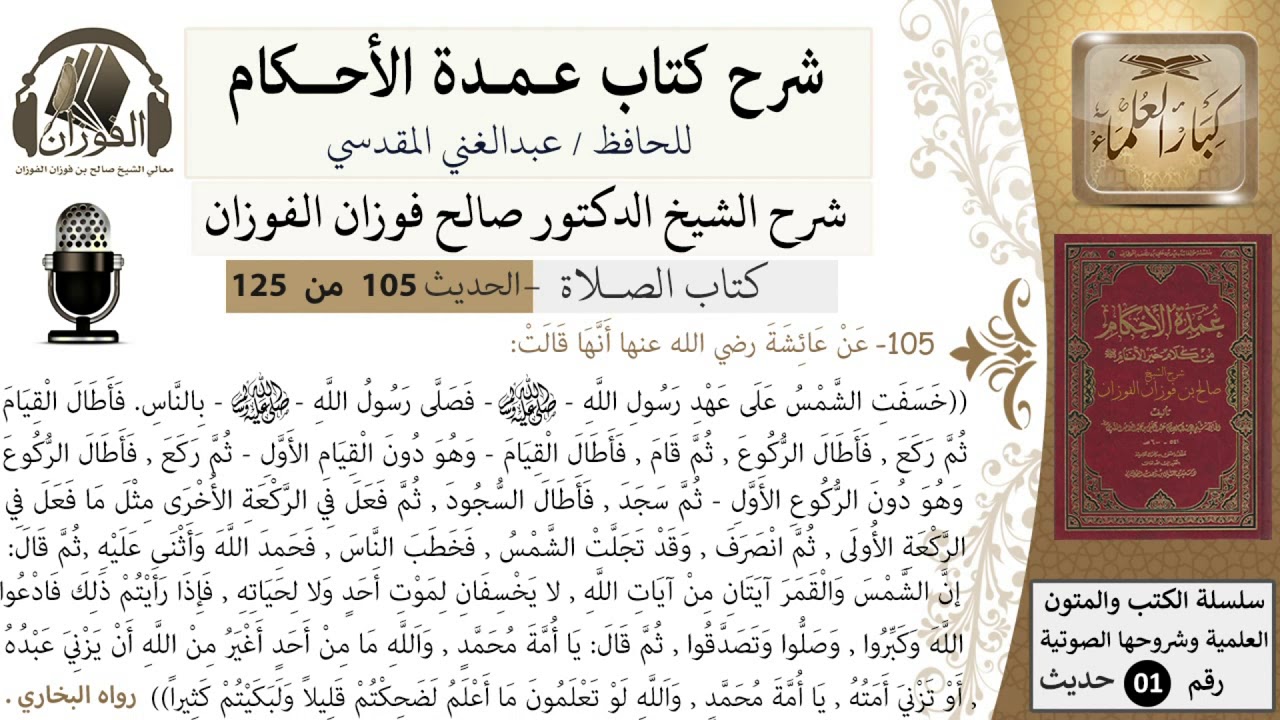 شرح كتاب عمدة الأحكام
للحافظ / عبدالغني المقدسي
شرح الشيخ الدكتور صالح فوزان الفوزان
كتاب الصلاة - الحديث 105 من 125
105- عَنْ عَائِشَةَ رضي الله عنها أَنَّهَا قَالَتْ:
((خَسَفَتِ الشَّمْسُ عَلَى عَهْدِ رَسُولِ اللَّهِ - ﷺ - فَصَلَّى رَسُولُ اللَّهِ - ﷺ - بِالنَّاسِ. فَأَطَالَ الْقِيَامَ
ثُمَّ رَكَعَ , فَأَطَالَ الرُّكُوعَ , ثُمَّ قَامَ , فَأَطَالَ الْقِيَامَ - وَهُوَ دُونَ الْقِيَامِ الأَوَّلِ - ثُمَّ رَكَعَ , فَأَطَالَ الرُّكُوعَ
وَهُوَ دُونَ الرُّكُوعِ الأَوَّلِ - ثُمَّ سَجَدَ , فَأَطَالَ السُّجُودَ , ثُمَّ فَعَلَ فِي الرَّكْعَةِ الأُخْرَى مِثْلَ مَا فَعَلَ فِي
الرَّكْعَةِ الأُولَى , ثُمَّ انْصَرَفَ , وَقَدْ تَجَلَّتْ الشَّمْسُ , فَخَطَبَ النَّاسَ , فَحَمِدَ اللَّهَ وَأَثْنَى عَلَيْهِ ,ثُمَّ قَالَ:
إنَّ الشَّمْسَ وَالْقَمَرَ آيَتَانِ مِنْ آيَاتِ اللَّهِ , لا يَخْسِفَانِ لِمَوْتِ أَحَدٍ وَلا لِحَيَاتِهِ , فَإِذَا رَأَيْتُمْ ذَلِكَ فَادْعُوا
اللَّهَ وَكَبِّرُوا , وَصَلُّوا وَتَصَدَّقُوا , ثُمَّ قَالَ: يَا أُمَّةَ مُحَمَّدٍ , وَاَللَّهِ مَا مِنْ أَحَدٍ أَغْيَرُ مِنْ اللَّهِ أَنْ يَزْنِيَ عَبْدُهُ
, أَوْ تَزْنِيَ أَمَتُهُ , يَا أُمَّةَ مُحَمَّدٍ , وَاَللَّهِ لَوْ تَعْلَمُونَ مَا أَعْلَمُ لَضَحِكْتُمْ قَلِيلاً وَلَبَكَيْتُمْ كَثِيراً)) رواه البخاري .
الفوزان
معالي الشيخ صالح بن فوزان الفوزان
كبار العلماء
عُمْدَةُ الأَحْكَامِ
مِنْ كَلَامِ خَيْرِ الأَنَامِ ﷺ
شرح الشيخ
صالح بن فوزان الفوزان
سلسلة الكتب والمتون
العلمية وشروحها الصوتية
رقم 01 حديث